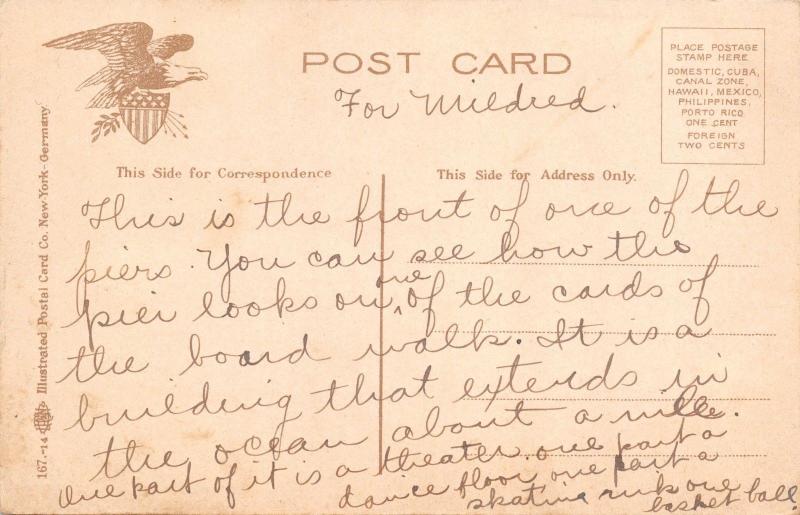 POST CARD
For Mildred.
PLACE POSTAGE
STAMP HERE
DOMESTIC, CUBA,
CANAL ZONE,
HAWAII, MEXICO,
PHILIPPINES,
PORTO RICO
ONE CENT
FOREIGN
TWO CENTS
This Side for Correspondence
This Side for Address Only.
This is the front of one of the
piers. You can see how this
pier looks on one of the cards of
the board walk. It is a
building that extends in
the ocean about a mile.
One part of it is a theater. one part a
dance floor one part a
skating rink one
basket ball.
167.-14 Illustrated Postal Card Co. New-York-Germany